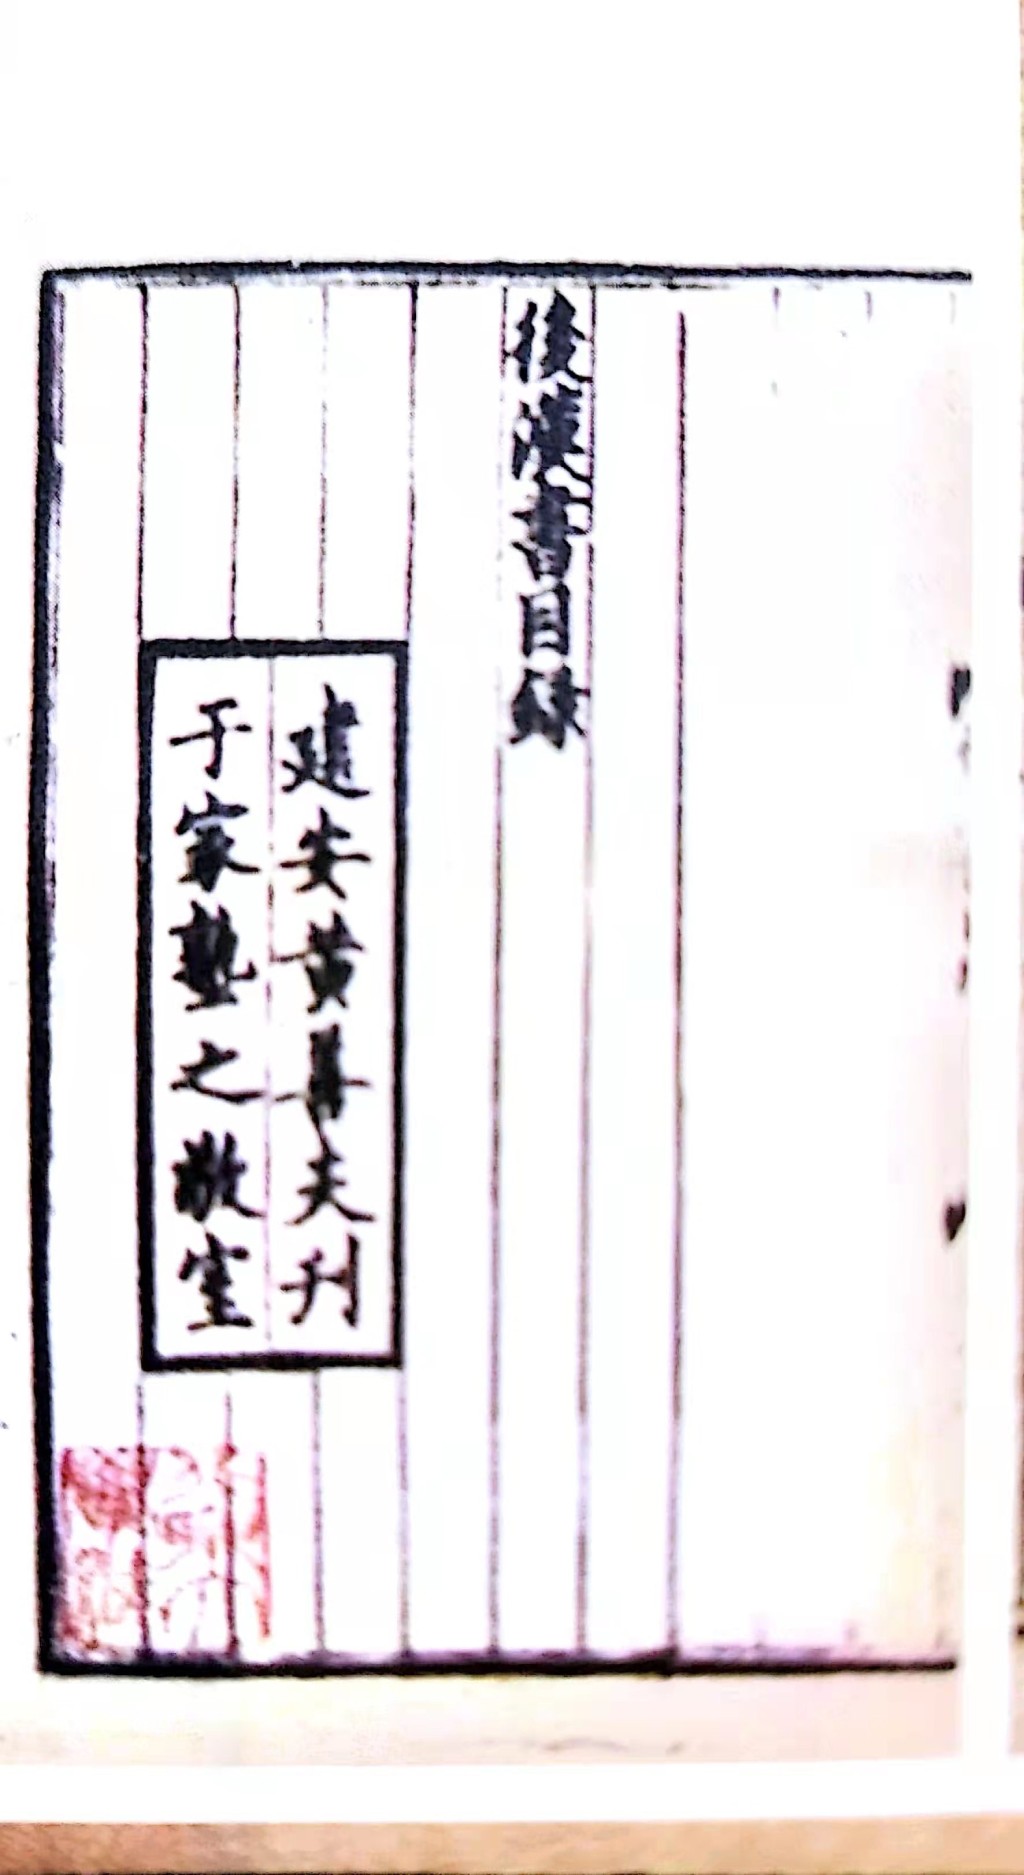 後漢書目録
建安黄善夫刊
于家塾之敬室